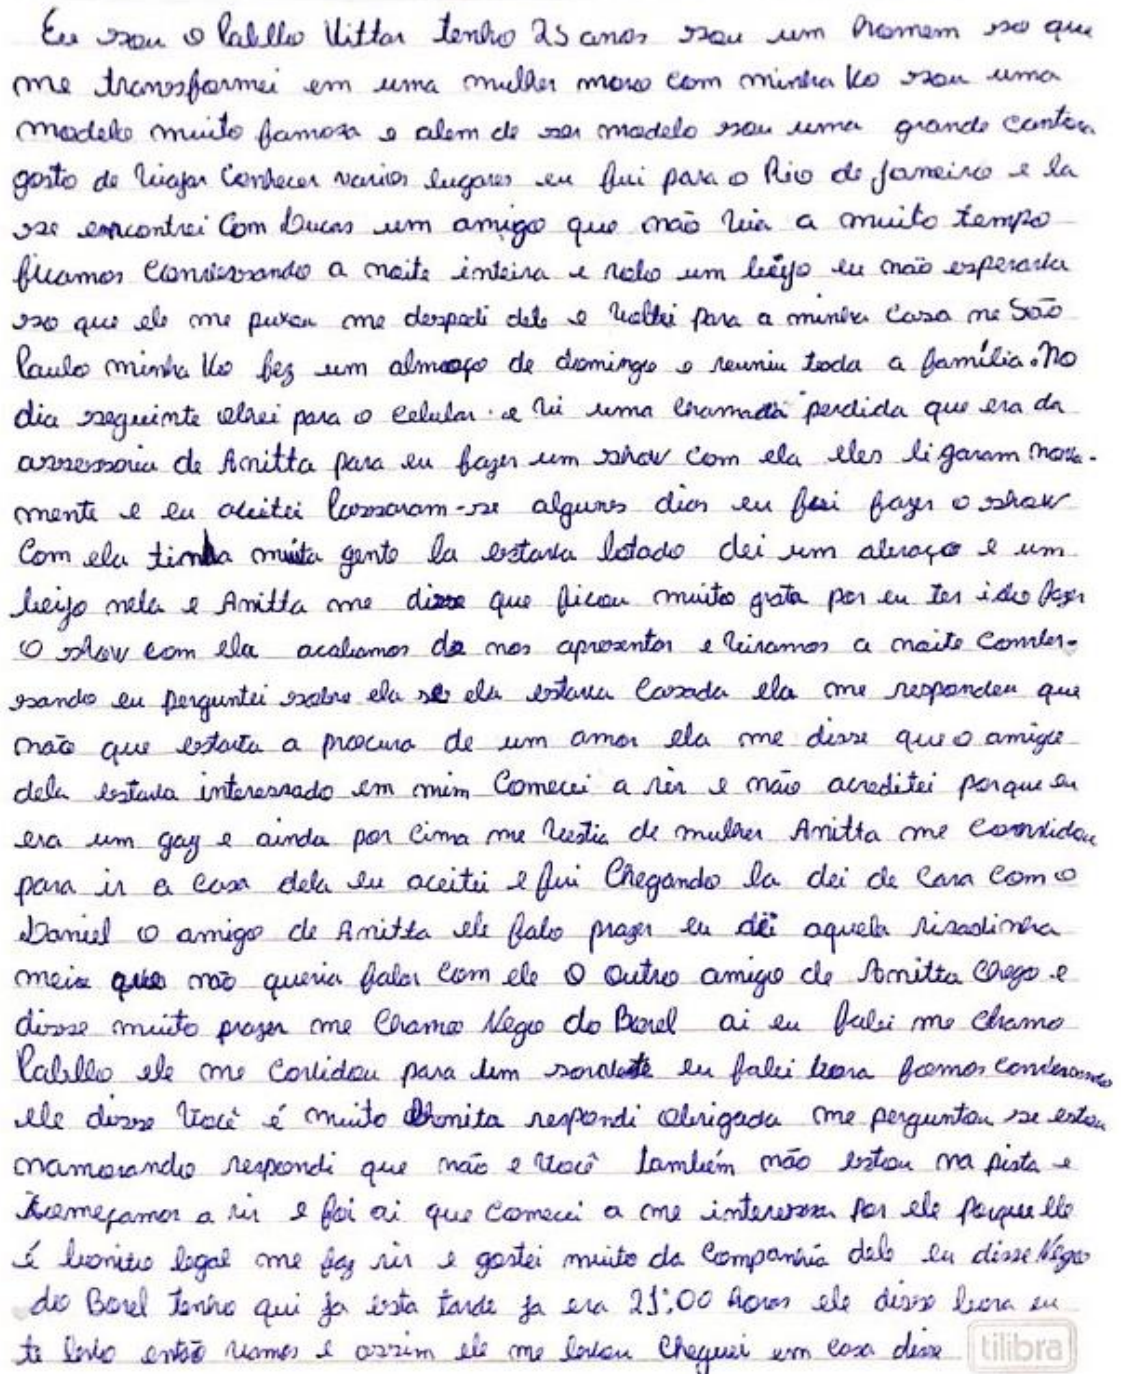 Eu sou o Pabllo Vittar tenho 25 anos sou um homem so que
me transformei em uma mulher moro com minha vo sou uma
modelo muito famosa e alem de ser modelo sou uma grande cantora
gosto de viajar conhecer varios lugares eu fui para o Rio de janeiro e la
se encontrei com Lucas um amigo que não via a muito tempo
ficamos conversando a noite inteira e rolo um beijo eu não esperava
so que ele me puxou me despedi dele e voltei para a minha casa no São
Paulo minha vo fez um almoço de domingo e reuniu toda a família. No
dia seguinte olhei para o celular e vi uma chamada perdida que era da
assessoria de Anitta para eu fazer um show com ela eles ligaram nova-
mente e eu aceitei Passaram-se algums dias eu fui fazer o show
com ela tinha muita gente la estava lotado dei um abraço e um
beijo nela e Anitta me disse que ficou muito grata por eu ter ido fazer
o show com ela acabamos de nos apresentar e viramos a noite conver-
sando eu perguntei sobre ela se ela estava casada ela me respondeu que
não que estava a procura de um amor ela me disse que o amigo
dela estava interessado em mim Comecei a rir e não acreditei porque eu
era um gay e ainda por cima me vestia de mulher Anitta me convidou
para ir a casa dela eu aceitei e fui Chegando la dei de cara com o
Daniel o amigo de Anitta ele falo prazer eu dei aquela risadinha
meia que não queria falar com ele O outro amigo de Anitta chego e
disse muito prazer me chamo Nego do Borel ai eu falei me chamo
Pabllo ele me convidou para um sorvete eu falei bora fomos conversando
ele disse você é muito bonita respondi obrigada me perguntou se estou
namorando respondi que não e você também não estou na pista e
começamos a rir e foi ai que comecei a me interessar por ele porque ele
é bonito legal me faz rir e gostei muito da companhia dele eu disse Nego
do Borel tenho qui ja esta tarde ja era 21:00 horas ele disse bora eu
te levo então vamos e assim ele me levou Cheguei em casa disse
tilibra